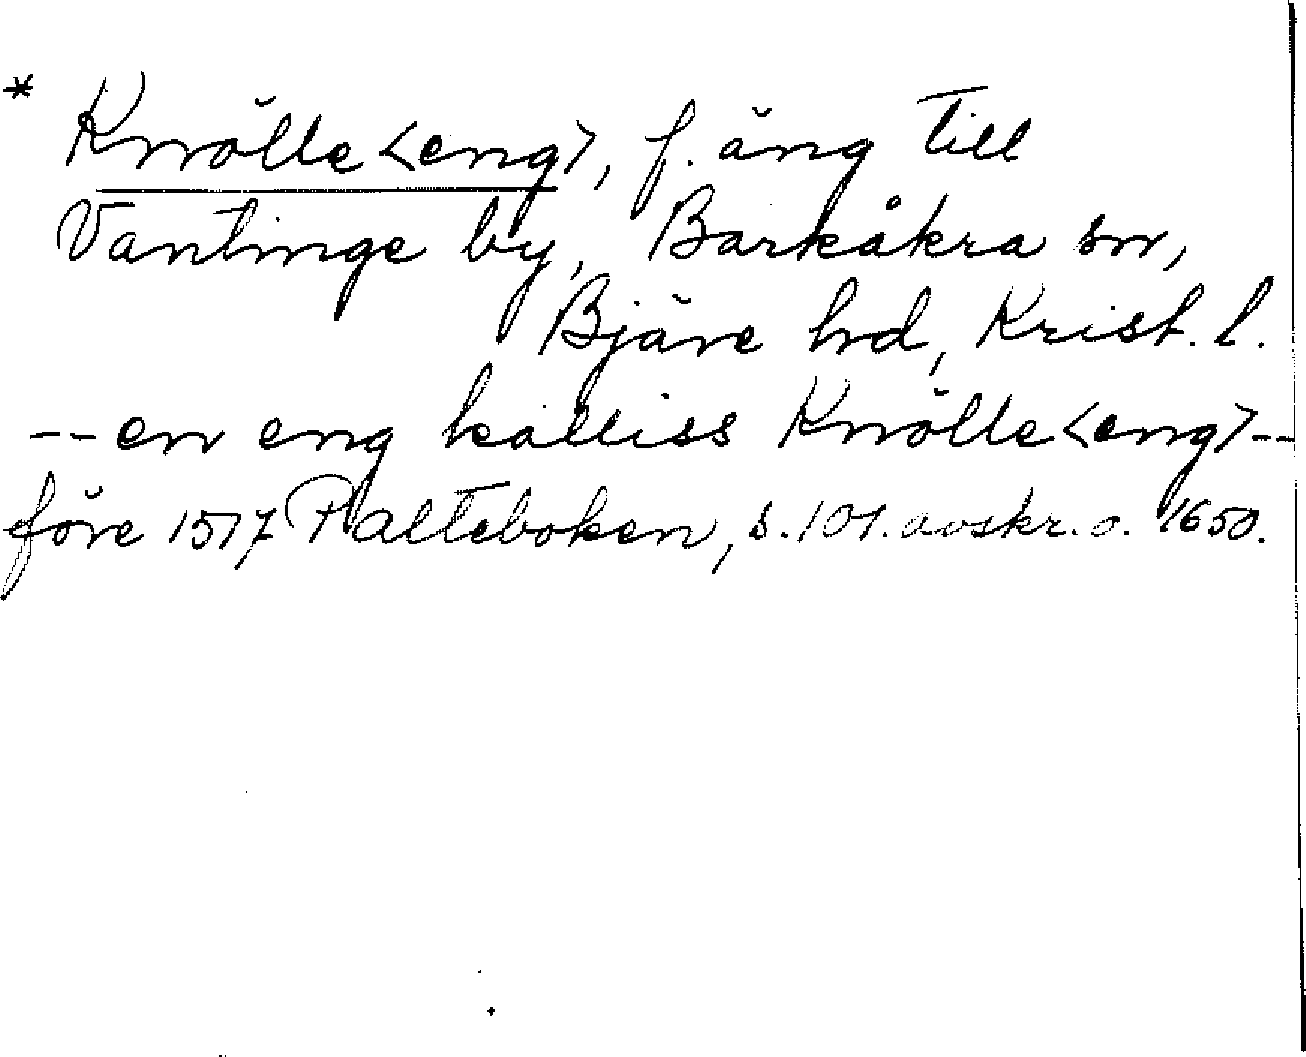 * Knölle<eng>, f. äng till
Vantinge by, Barkåkra sn,
Bjäre hd, Krist. l.
-- en eng kalliss Knölle<eng> --
före 1517 Palteboken, s. 101. avskr. o. 1650.